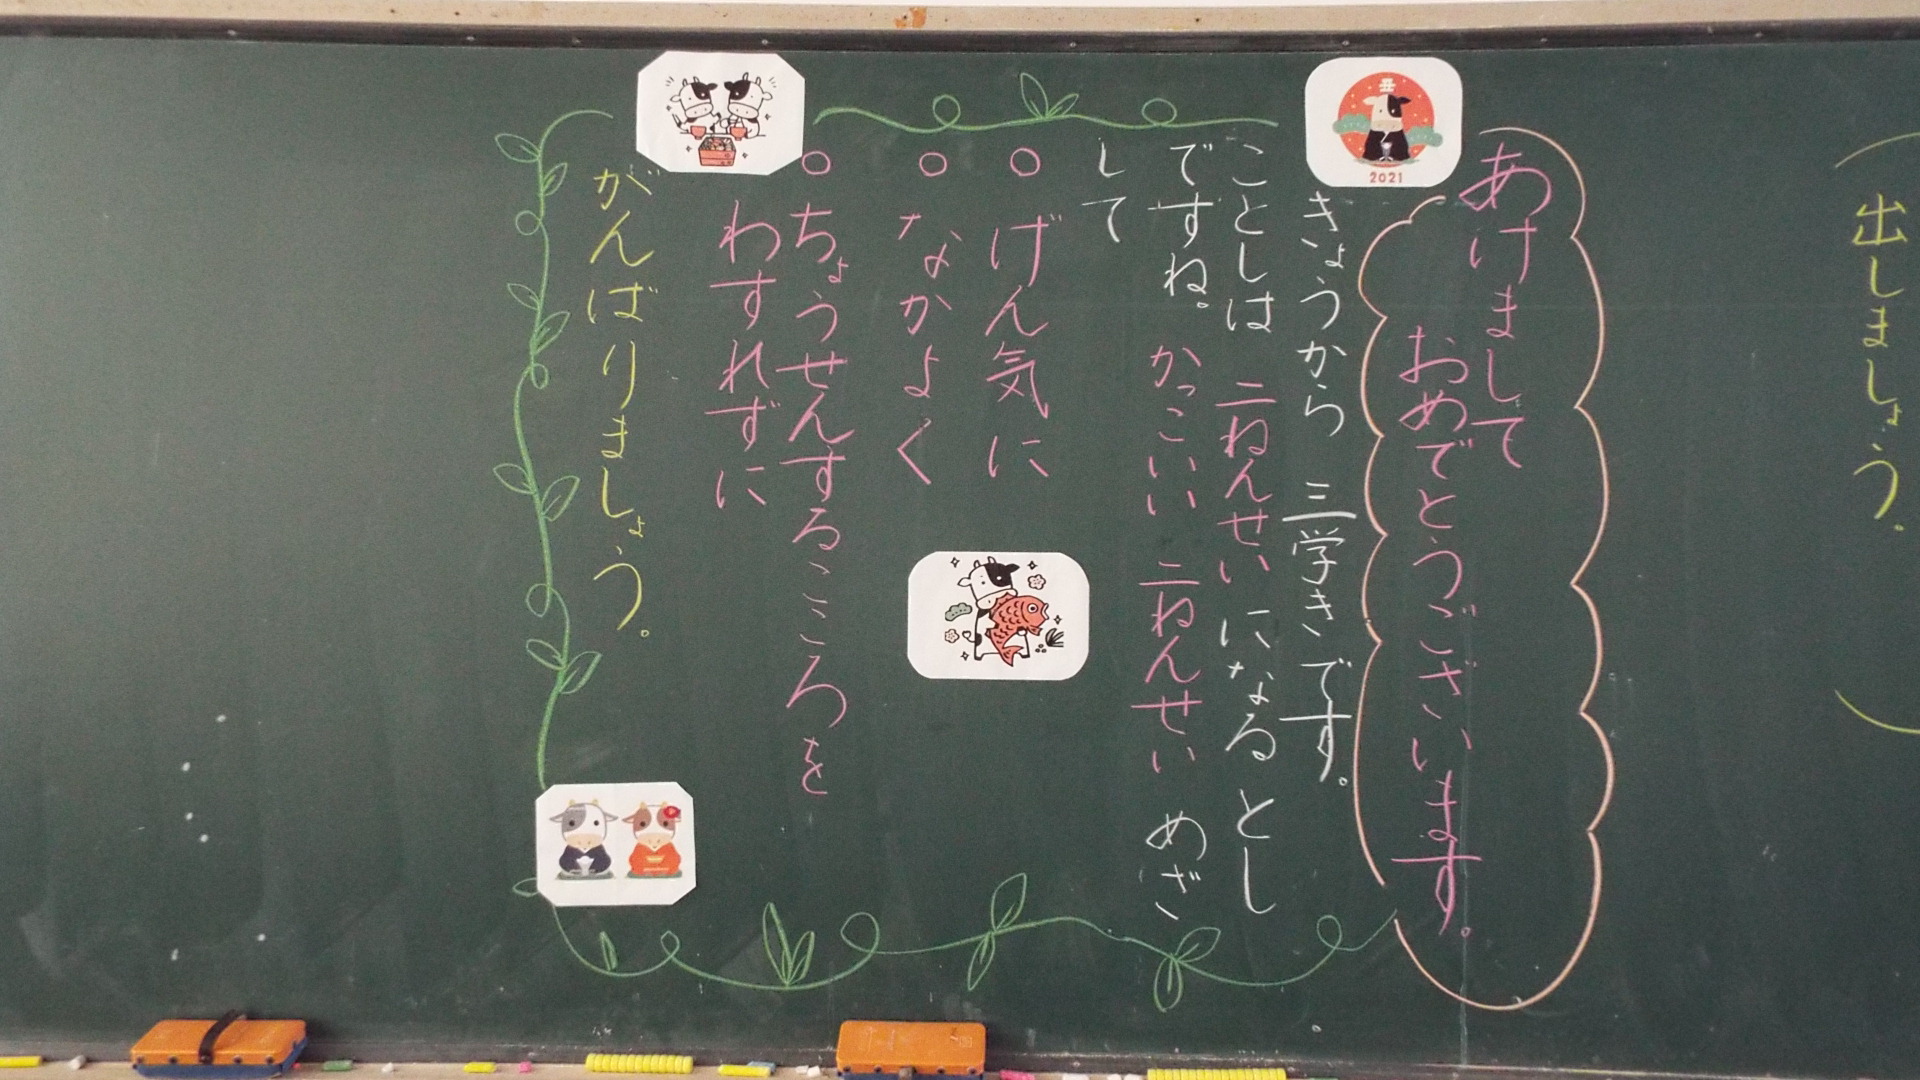 出しましょう。
あけまして
おめでとうございます。
きょうから 三学きです。
ことしは 二ねんせいになるとし
ですね。 かっこいい 二ねんせい めざ
して
○ げん気に
○ なかよく
○ ちょうせんするこころを
わすれずに
がんばりましょう。
丑
2021